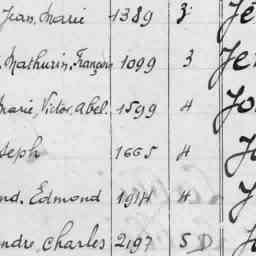 Jean, Marie 1389 3 Je
Mathurin, François 1099 3 Je
Marie, Victor, Abel. 1599 4 Jo
seph 1665 4 J
nd. Edmond 1914 4 J
ndre, Charles 2197 5 D J